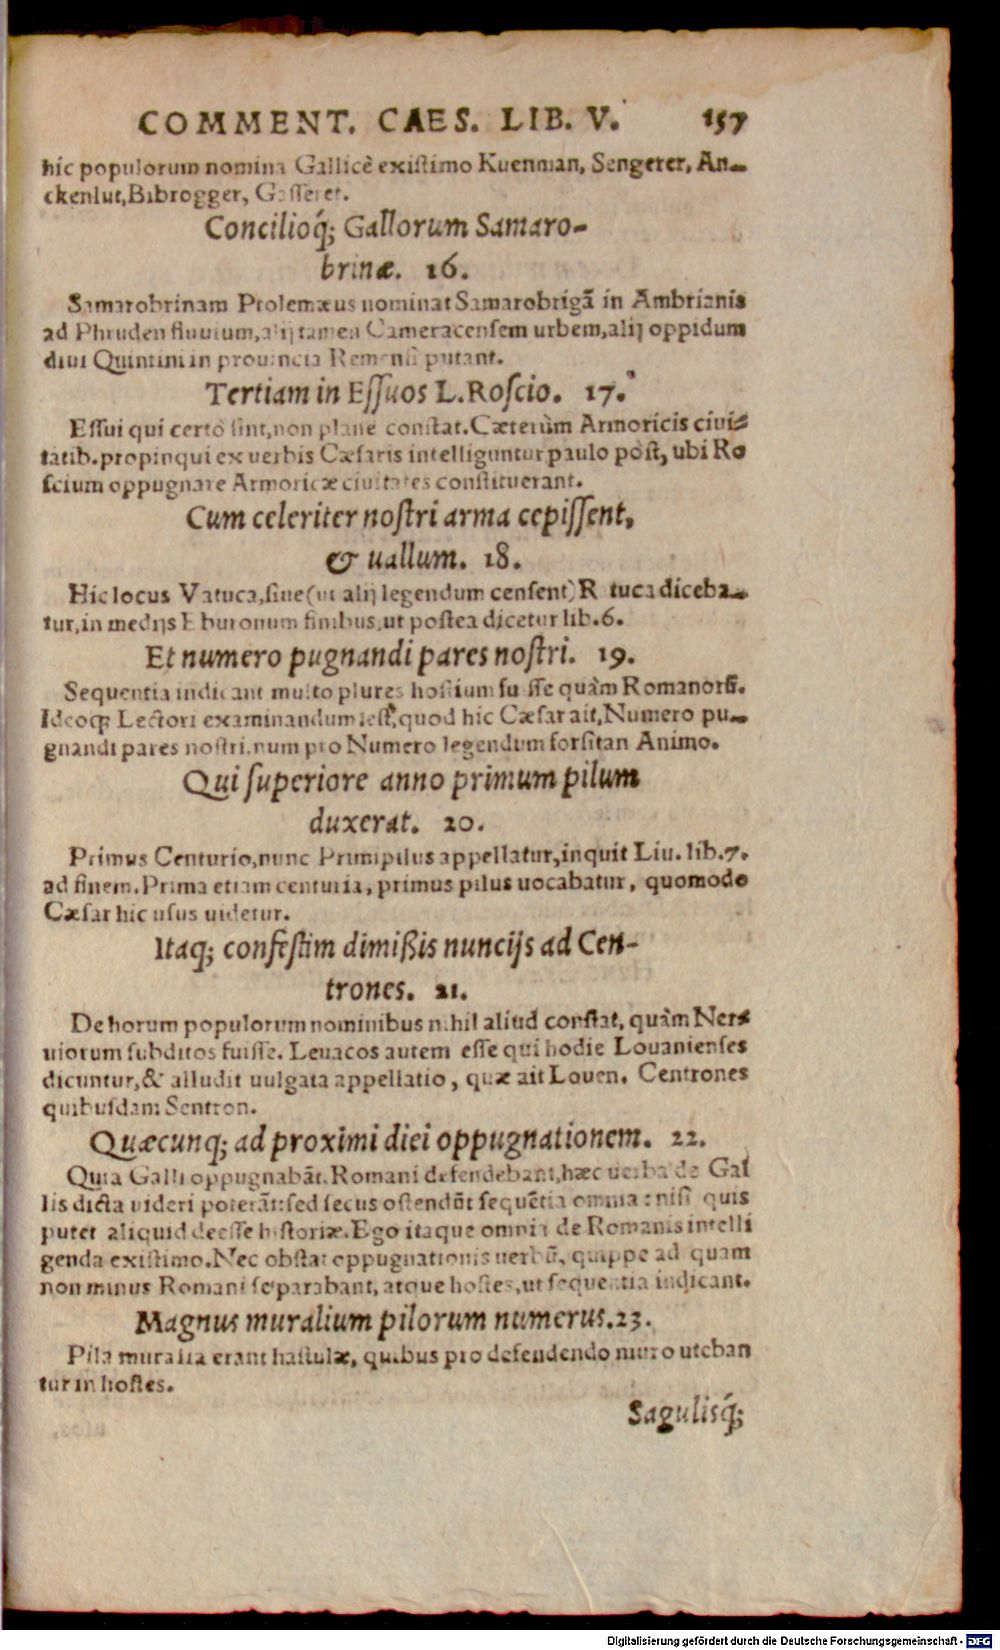 COMMENT. CAES. LIB. V. 157
hic populorum nomina Gallicè existimo Kuenman, Sengerer, An-
ckenlut, Bibrogger, Gasseret.
Concilioq́; Gallorum Samaro-
brinæ. 16.
Samarobrinam Ptolemæus nominat Samarobrigā in Ambrianis
ad Phruden fluuium, alij tamen Cameracensem urbem, alij oppidum
diui Quintini in prouincia Remensi putant.
Tertiam in Essuos L. Roscio. 17.
Essui qui certò sint, non planè constat. Cæterùm Armoricis ciui-
tatib. propinqui ex uerbis Cæsaris intelliguntur paulo pòst, ubi Ro
scium oppugnare Armoricæ ciuitates constituerant.
Cum celeriter nostri arma cepissent,
& uallum. 18.
Hic locus Vatuca, siue (ut alij legendum censent) R tuca diceba-
tur, in medijs Eburonum finibus, ut postea dicetur lib. 6.
Et numero pugnandi pares nostri. 19.
Sequentia indicant multo plures hostium fuisse quàm Romanorū.
Ideoq; Lectori examinandum est, quod hic Cæsar ait, Numero pu-
gnandi pares nostri, num pro Numero legendum forsitan Animo.
Qui superiore anno primum pilum
duxerat. 20.
Primus Centurio, nunc Primipilus appellatur, inquit Liu. lib. 7.
ad finem. Prima etiam centuria, primus pilus uocabatur, quomodo
Cæsar hic usus uidetur.
Itaq; confestim dimißis nuncijs ad Cen-
trones. 21.
De horum populorum nominibus nihil aliud constat, quàm Ner-
uiorum subditos fuisse. Leuacos autem esse qui hodie Louanienses
dicuntur, & alludit uulgata appellatio, quæ ait Louen. Centrones
quibusdam Sentron.
Quæcunq; ad proximi diei oppugnationem. 22.
Quia Galli oppugnabāt. Romani defendebant, hæc uerba de Gal
lis dicta uideri poterāt: sed secus ostendūt sequētia omnia: nisi quis
putet aliquid deesse historiæ. Ego itaque omnia de Romanis intelli
genda existimo. Nec obstat oppugnationis uerbū, quippe ad quam
non minus Romani se parabant, atque hostes, ut sequentia indicant.
Magnus muralium pilorum numerus. 23.
Pila muralia erant hastulæ, quibus pro defendendo muro uteban
tur in hostes.
Sagulisq́;
Digitalisierung gefördert durch die Deutsche Forschungsgemeinschaft - DFG